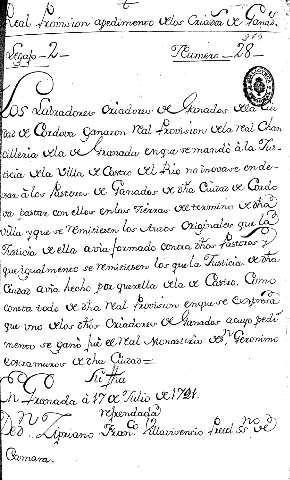 Real Provision a pedimento de los Criadores de Ganados
Legajo - 2 - Numero - 28 -
Los Labradores Criadores de Ganados de la Ciu
dad de Cordova ganaron Real Provision de la Real Chan
cilleria de la de Granada en que se mandò à la Jus
ticia de la Villa de Castro el Rio no inovase en de
xar à los Pastores de Ganados de dha Ciudad de Cordo
va pastar con ellos en las Tierras de termino de dha
Villa y que se remitiesen los Autos Originales que la
Justicia de ella avia formado contra dhos Pastores y
que igualmente se remitiesen los que la Justicia de dha
Ciudad avia hecho por querella de la de Castro. Como
consta todo de dha Real Provision en que se
que uno de los dhos Criadores de Ganados a cuyo pedi
mento se ganó fué el Real Monasterio de Sn Geronimo
extramuros de dha Ciudad =
Su fha
En Granada à 17 de Julio de 1721.
refrendada
De Dn Zipriano Franco Villavicencio de
Camara.